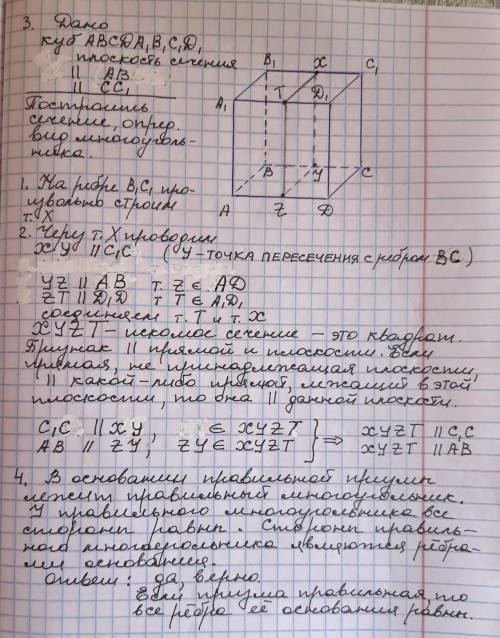 3. Дано
куб ABCDA₁B₁C₁D₁
плоскость сечения
|| AB
|| CC₁
Построить
сечение, опред.
вид многоуголь-
ника.
B₁ X C₁
A₁ T D₁
B Y C
A Z D
1. На ребре B₁C₁ про-
извольно строим
т. X
2. Через т. X проводим
XY || C₁C (Y - ТОЧКА ПЕРЕСЕЧЕНИЯ С РЕБРОМ BC)
YZ || AB т. Z ∈ AD
ZT || D₁D т T ∈ A₁D₁
соединяем т. T и т. X
XYZT - искомое сечение - это квадрат.
Признак || прямой и плоскости. Если
прямая, не принадлежащая плоскости,
|| какой-либо прямой, лежащей в этой
плоскости, то она || данной плоскости.
C₁C || XY, ∈ XYZT } ⇒ XYZT || C₁C
AB || ZY, ZY ∈ XYZT XYZT || AB
4. В основании правильной призмы
лежит правильный многоугольник.
У правильного многоугольника все
стороны равны. Стороны правиль-
ного многоугольника являются рёбра-
ми основания.
Ответ: да, верно.
Если призма правильная, то
все рёбра её основания равны.